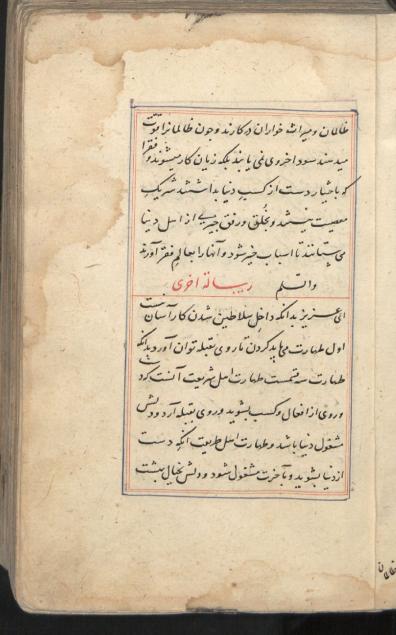 ظالمان و میراث خواران در کارند و چون ظالمانرا قوت
میدهند سود اخروی نمی یابند بلکه زیان کار میشوند و فقرا
که باختیار دست از کسب دنیا بداشتند شریک
معصیت نیستند و بخلق و رفق چیزی از اهل دنیا
می ستانند تا اسباب خیر شود و آنها را بعالم فقر آورند
والسلم رسالة اخری
ای عزیز بدانکه داخل سلاطین شدن کار آسان نیست
اول طهارت می باید کردن تا روی بقبله توان آورد بدانکه
طهارت سه قسمست طهارت اهل شریعت آنست که دست
و روی از افعال و کسب بشوید و روی بقبله آرد و دلش
مشغول دنیا باشد و طهارت اهل طریقت آنکه دست
از دنیا بشوید و بآخرت مشغول شود و دلش بخیال بهشت